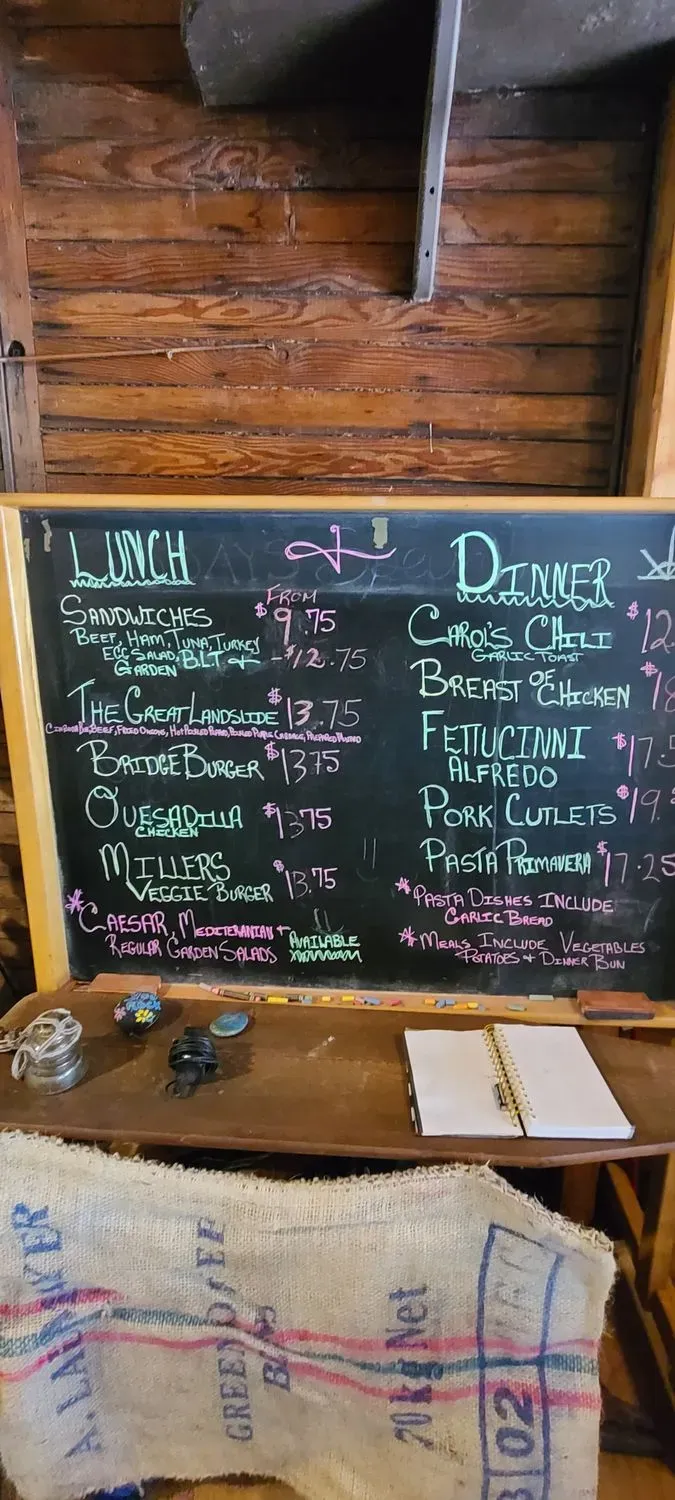 LUNCH
FROM
SANDWICHES $9.75
BEEF, HAM, TUNA, TURKEY
EGG SALAD, B.L.T + -$12.75
GARDEN
THE GREAT LANDSLIDE $13.75
BEEF, FRIED ONIONS,
BRIDGE BURGER $13.75
QUESADILLA $13.75
CHICKEN
MILLERS
VEGGIE BURGER $13.75
* CAESAR, MEDITERANIAN +
REGULAR GARDEN SALADS
AVAILABLE
DINNER
CAROL'S CHILI $12.
GARLIC TOAST
BREAST OF CHICKEN $18
FETTUCINNI $17.5
ALFREDO
PORK CUTLETS $19.
PASTA PRIMAVERA $17.25
* PASTA DISHES INCLUDE
GARLIC BREAD
* MEALS INCLUDE VEGETABLES
POTATOES + DINNER BUN
GREEN COFFEE
20kg Net
02